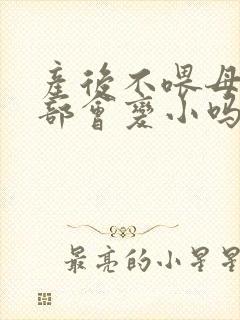 產後不喂母
部會變小嗎
最亮的小星星